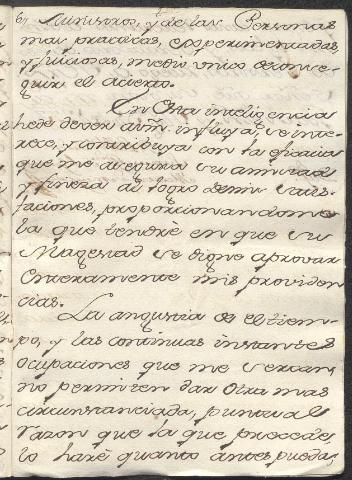 Ministros, y de las Personas
mas practicas, esperimentadas,
y juiciosas, medio unico de conse-
guir el acierto.
En esta inteligencia
hede dever avm. influya, se inte-
rece, y contribuya con la eficacia
que me asegura su amistad
y fineza al logro demis satis-
faciones, proporcionandome
la que tendrè en que su
Magestad se digne aprovar
enteramente mis providen
cias.
La angustia de el tiem-
po, y las continuas instantes
ocupaciones que me cercan,
no permiten dar otra mas
circunstanciada, puntual
razon que la que precede;
lo harè quanto antes pueda,